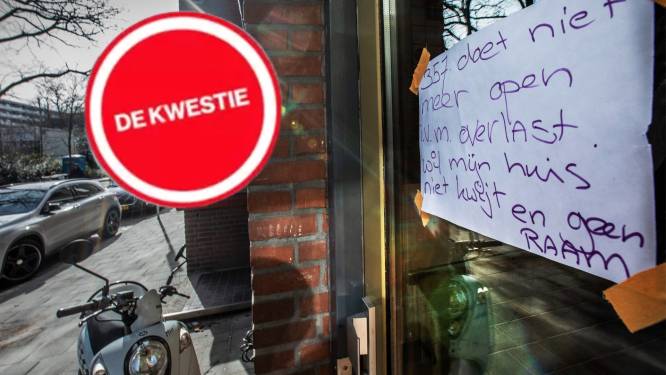 DE KWESTIE
357 doet niet
meer open
i.v.m. overlast.
Wil mijn huis
niet kwijt en geen
RAAM